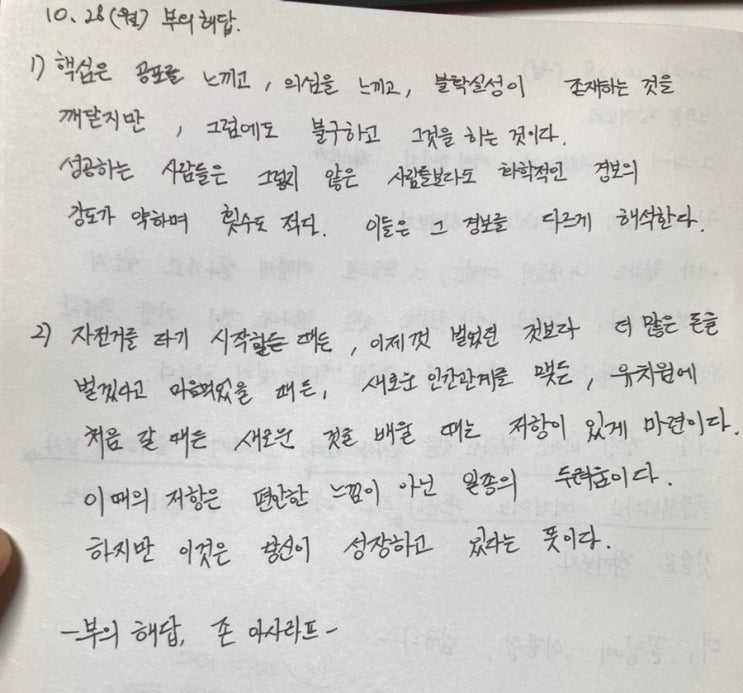 10. 28(월) 부의 해답.
1) 핵심은 공포를 느끼고, 의심을 느끼고, 불확실성이 존재하는 것을
깨닫지만, 그럼에도 불구하고 그것을 하는 것이다.
성공하는 사람들은 그렇지 않은 사람들보다도 화학적인 경보의
강도가 약하며 횟수도 적다. 이들은 그 경보를 다르게 해석한다.
2) 자전거를 타기 시작할 때든, 이제껏 벌었던 것보다 더 많은 돈을
벌겠다고 마음먹었을 때든, 새로운 인간관계를 맺든, 유치원에
처음 갈 때든 새로운 것을 배울 때는 저항이 있게 마련이다.
이 때의 저항은 편안한 느낌이 아닌 일종의 두려움이다.
하지만 이것은 당신이 성장하고 있다는 뜻이다.
-부의 해답, 존 아사라프-